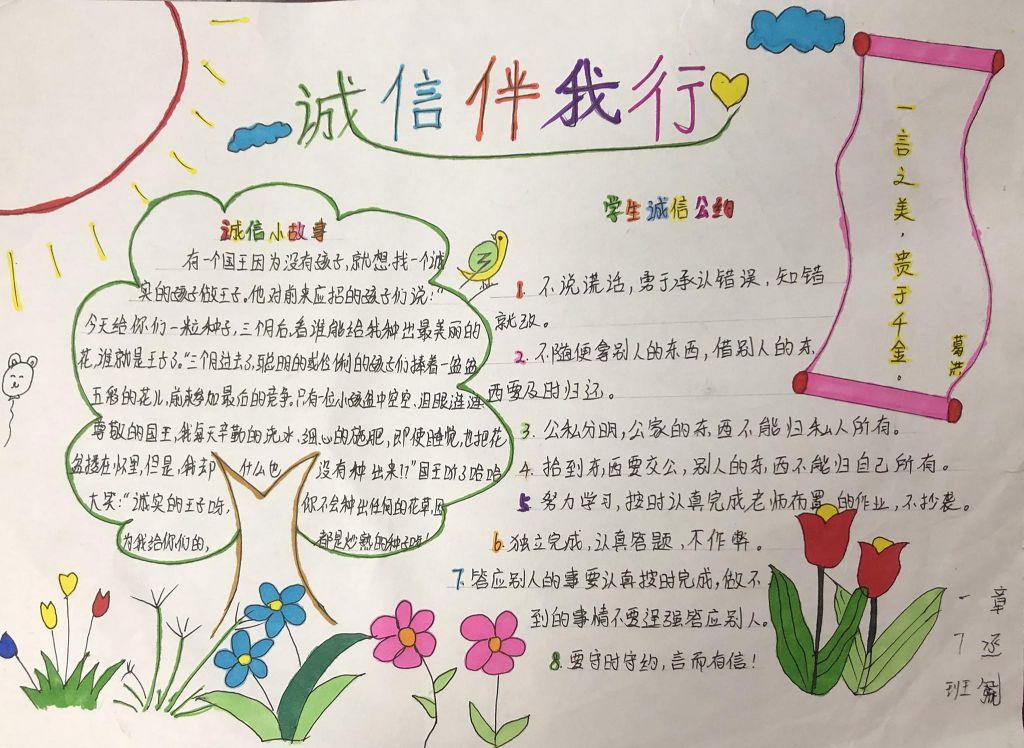 诚信伴我行
一言之美，贵于千金。
葛洪
诚信小故事
有一个国王因为没有孩子，就想找一个诚
实的孩子做王子。他对前来应招的孩子们说："
今天给你们一粒种子，三个月后，看谁能给我种出最美丽的
花，谁就是王子了。"三个月过去了，聪明的孩子们捧着一盆盆
五彩的花儿，前来参加最后的竞争。只有一位小孩盆中空空、泪眼涟涟
尊敬的国王，我每天辛勤的浇水、细心的施肥，即使睡觉，也把花
盆搂在怀里，但是，我却什么也没有种出来！？"国王听了哈哈
大笑："诚实的王子呀，你不会种出任何的花草，因
为我给你们的，都是炒熟的种子呀！
学生诚信公约
1. 不说谎话，勇于承认错误，知错
就改。
2. 不随便拿别人的东西，借别人的东
西要及时归还。
3. 公私分明，公家的东西不能归私人所有。
4. 拾到东西要交公，别人的东西不能归自己所有。
5. 努力学习，按时认真完成老师布置的作业，不抄袭。
6. 独立完成，认真答题，不作弊。
7. 答应别人的事要认真按时完成，做不
到的事情不要逞强答应别人。
8. 要守时守约，言而有信！
一7班
章